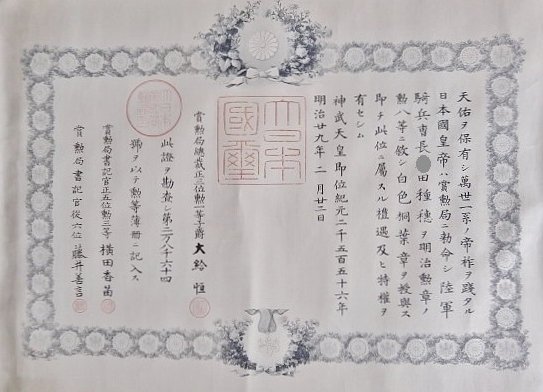 天佑ヲ保有シ萬世一系ノ帝祚ヲ踐タル
日本國皇帝ハ賞勲局ニ勅命シ陸軍
騎兵曹長 田種穂ヲ明治勲章ノ
勲八等ニ敘シ白色桐葉章ヲ授與ス
即チ此位ニ屬スル禮遇及ヒ特權ヲ
有セシム
神武天皇即位紀元二千五百五十六年
明治廿九年 一月廿二日
大日本國璽
賞勲局總裁正三位勲一等子爵 大給恒
此證ヲ勘査シ第二万八千六十四
號ヲ以テ勲等簿冊ニ記入ス
賞勲局書記官正五位勲三等 横田香苗
賞勲局書記官從六位 藤井善言